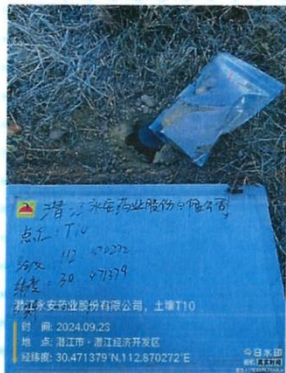 潜江永安药业股份有限公司
点位：T10
经度：112.870272
纬度：30.471379
潜江永安药业股份有限公司，土壤T10
时 间：2024.09.23
地 点：潜江市·潜江经济开发区
经纬度：30.471379°N,112.870272°E
今日水印
真实时间